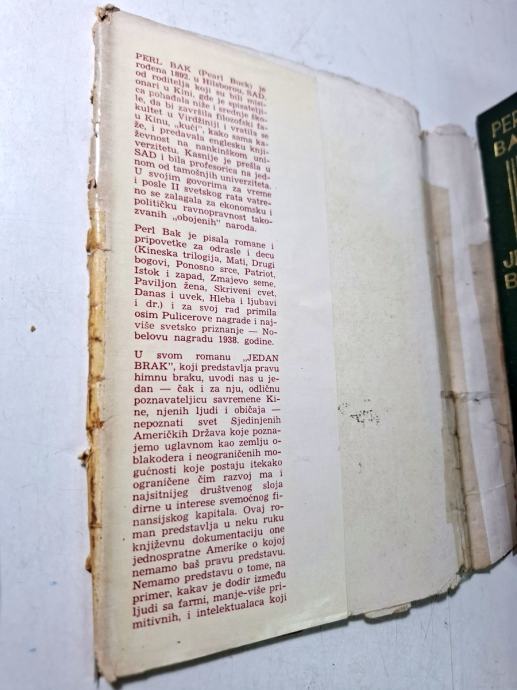 PERL BAK (Pearl Buck) je
rođena 1892. u Hilsborou, SAD,
od roditelja koji su bili misi-
onari u Kini, gde je spisatelji-
ca pohađala niže i srednje ško-
le, da bi završila filozofski fa-
kultet u Virdžiniji i vratila se
u Kinu, „kući”, kako sama ka-
že, i predavala englesku knji-
ževnost na nankinškom uni-
verzitetu. Kasnije je prešla u
SAD i bila profesorica na jed-
nom od tamošnjih univerziteta.
U svojim govorima za vreme
i posle II svetskog rata vatre-
no se zalagala za ekonomsku i
političku ravnopravnost tako-
zvanih „obojenih” naroda.
Perl Bak je pisala romane i
pripovetke za odrasle i decu
(Kineska trilogija, Mati, Drugi
bogovi, Ponosno srce, Patriot,
Istok i zapad, Zmajevo seme,
Paviljon žena, Skriveni cvet,
Danas i uvek, Hleba i ljubavi
i dr.) i za svoj rad primila
osim Pulicerove nagrade i naj-
više svetsko priznanje — No-
belovu nagradu 1938. godine.
U svom romanu „JEDAN
BRAK”, koji predstavlja pravu
himnu braku, uvodi nas u je-
dan — čak i za nju, odličnu
poznavateljicu savremene Ki-
ne, njenih ljudi i običaja —
nepoznati svet Sjedinjenih
Američkih Država koje pozna-
jemo uglavnom kao zemlju o-
blakodera i neograničenih mo-
gućnosti koje postaju itekako
ograničene čim razvoj ma i
najsitnijeg društvenog sloja
dirne u interese svemoćnog fi-
nansijskog kapitala. Ovaj ro-
man predstavlja u neku ruku
književnu dokumentaciju one
jednospratne Amerike o kojoj
nemamo baš pravu predstavu.
Nemamo predstavu o tome, na
primer, kakav je dodir između
ljudi sa farmi, manje-više pri-
mitivnih, i intelektualaca koji
PER
BA
JE
B